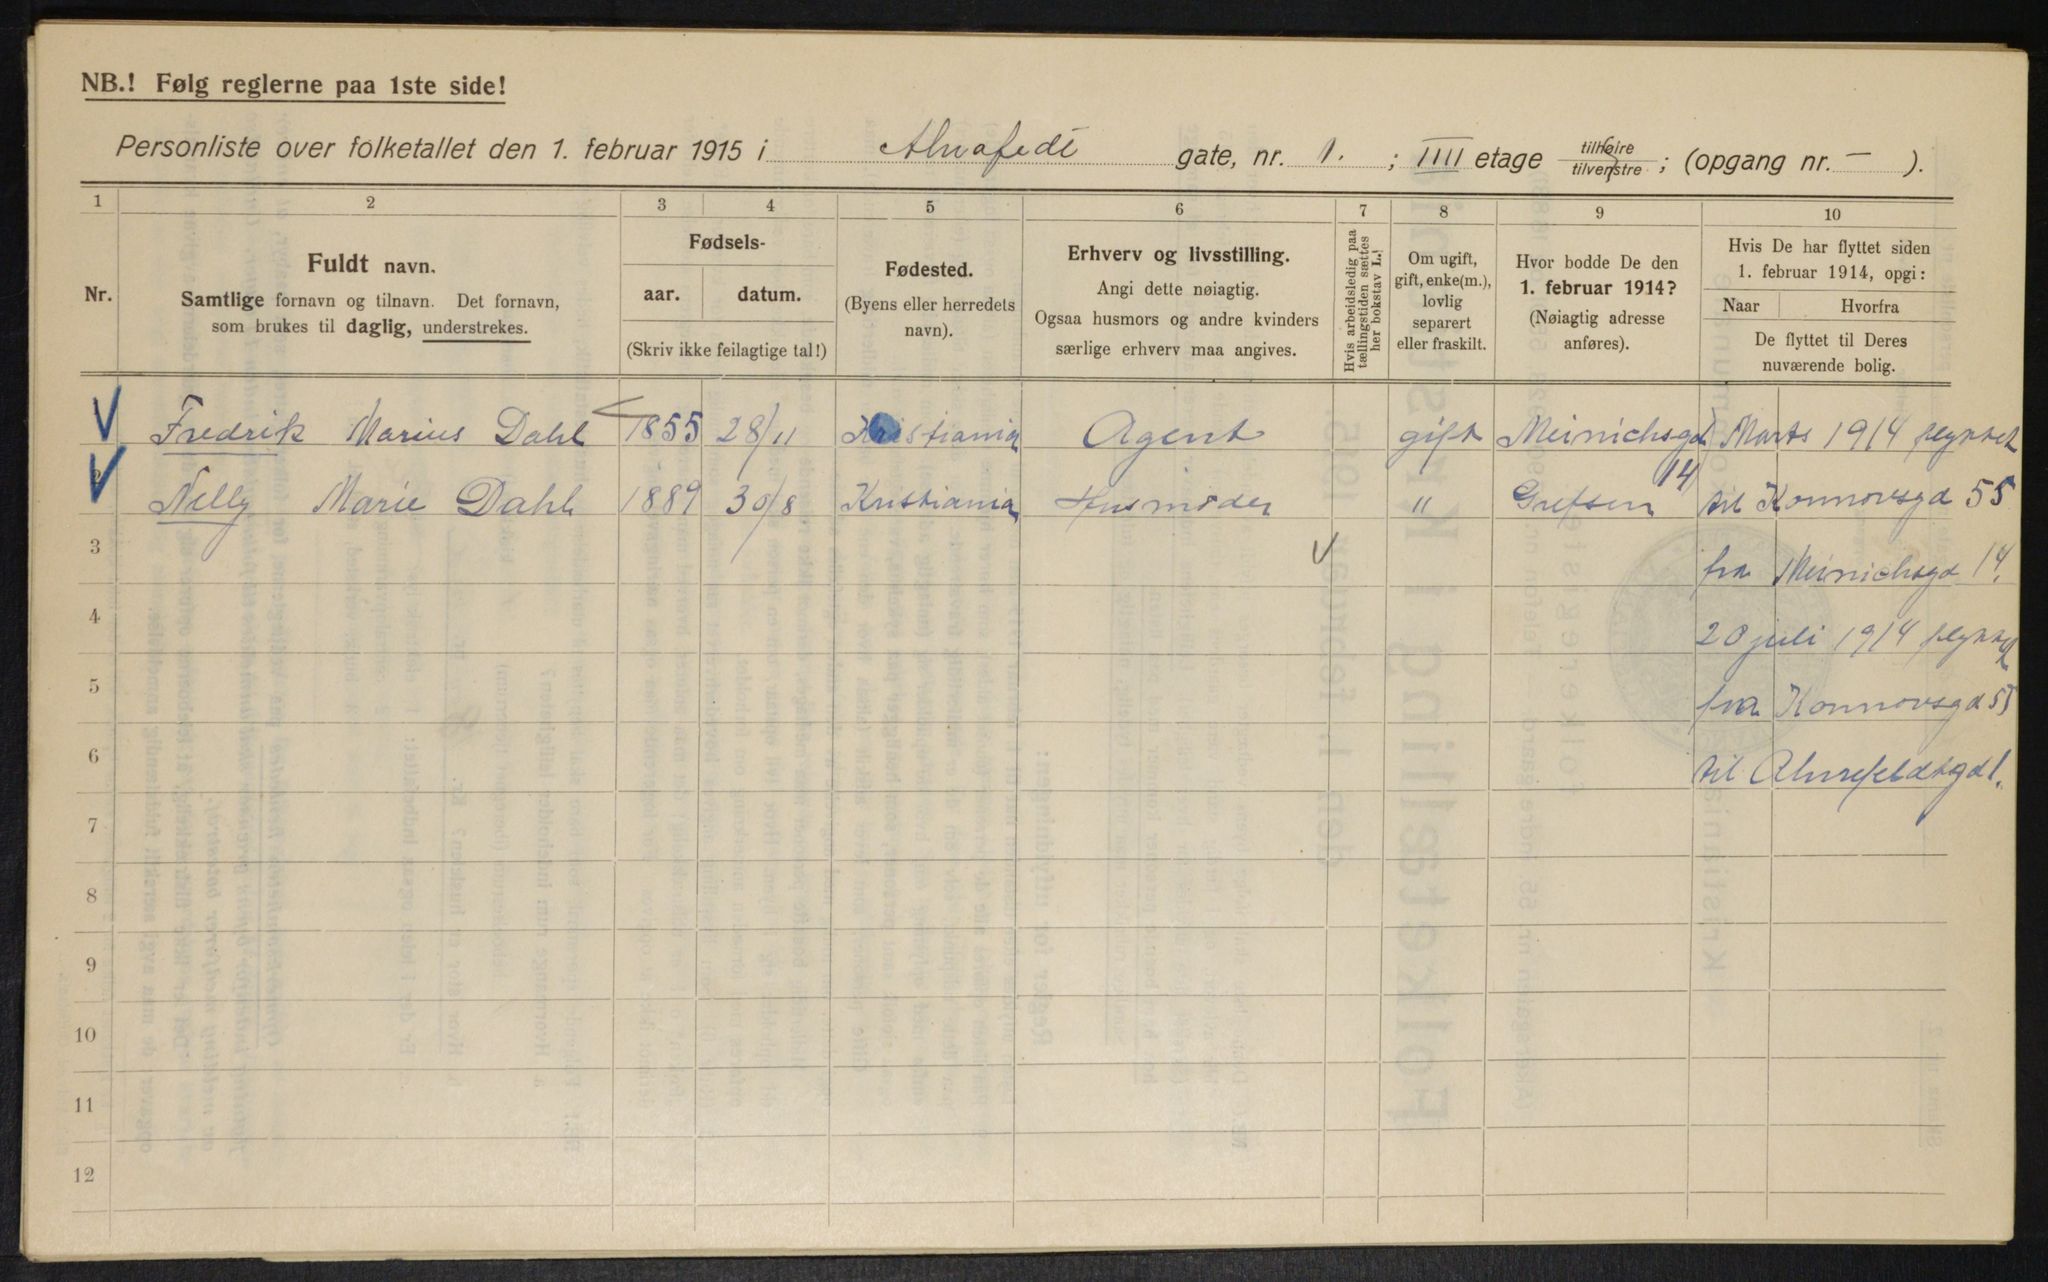 NB.! Følg reglerne paa 1ste side!
Personliste over folketallet den 1. februar 1915 i Ahnafedt gate, nr. 1. ; IIII etage tilhøire tilvenstre ; (opgang nr. — ).
1 2 3 4 5 6 7 8 9 10
Nr.
Fuldt navn.
Samtlige fornavn og tilnavn. Det fornavn,
som brukes til daglig, understrekes.
Fødsels-
aar. datum.
(Skriv ikke feilagtige tal!)
Fødested.
(Byens eller herredets
navn).
Erhverv og livsstilling.
Angi dette nøiagtig.
Ogsaa husmors og andre kvinders
særlige erhverv maa angives.
Hvis arbeidsledig paa
tællingstiden sættes
her bokstav L.!
Om ugift,
gift, enke(m.),
lovlig
separert
eller fraskilt.
Hvor bodde De den
1. februar 1914?
(Nøiagtig adresse
anføres).
Hvis De har flyttet siden
1. februar 1914, opgi:
Naar Hvorfra
De flyttet til Deres
nuværende bolig.
Fredrik Marius Dahl 1855 28/11 Kristiania Agent gift Meinichsgd 14 Marts 1914 flyttet
2 Nelly Marie Dahl 1889 30/8 Kristiania Husmoder " Grefsen til Konnovsgd 55
3 fra Meinichsgd 14.
4 20 juli 1914 flyttet
5 fra Konnovsgd 55
6 til Ahnefeldtgd 1.
7
8
9
10
11
12